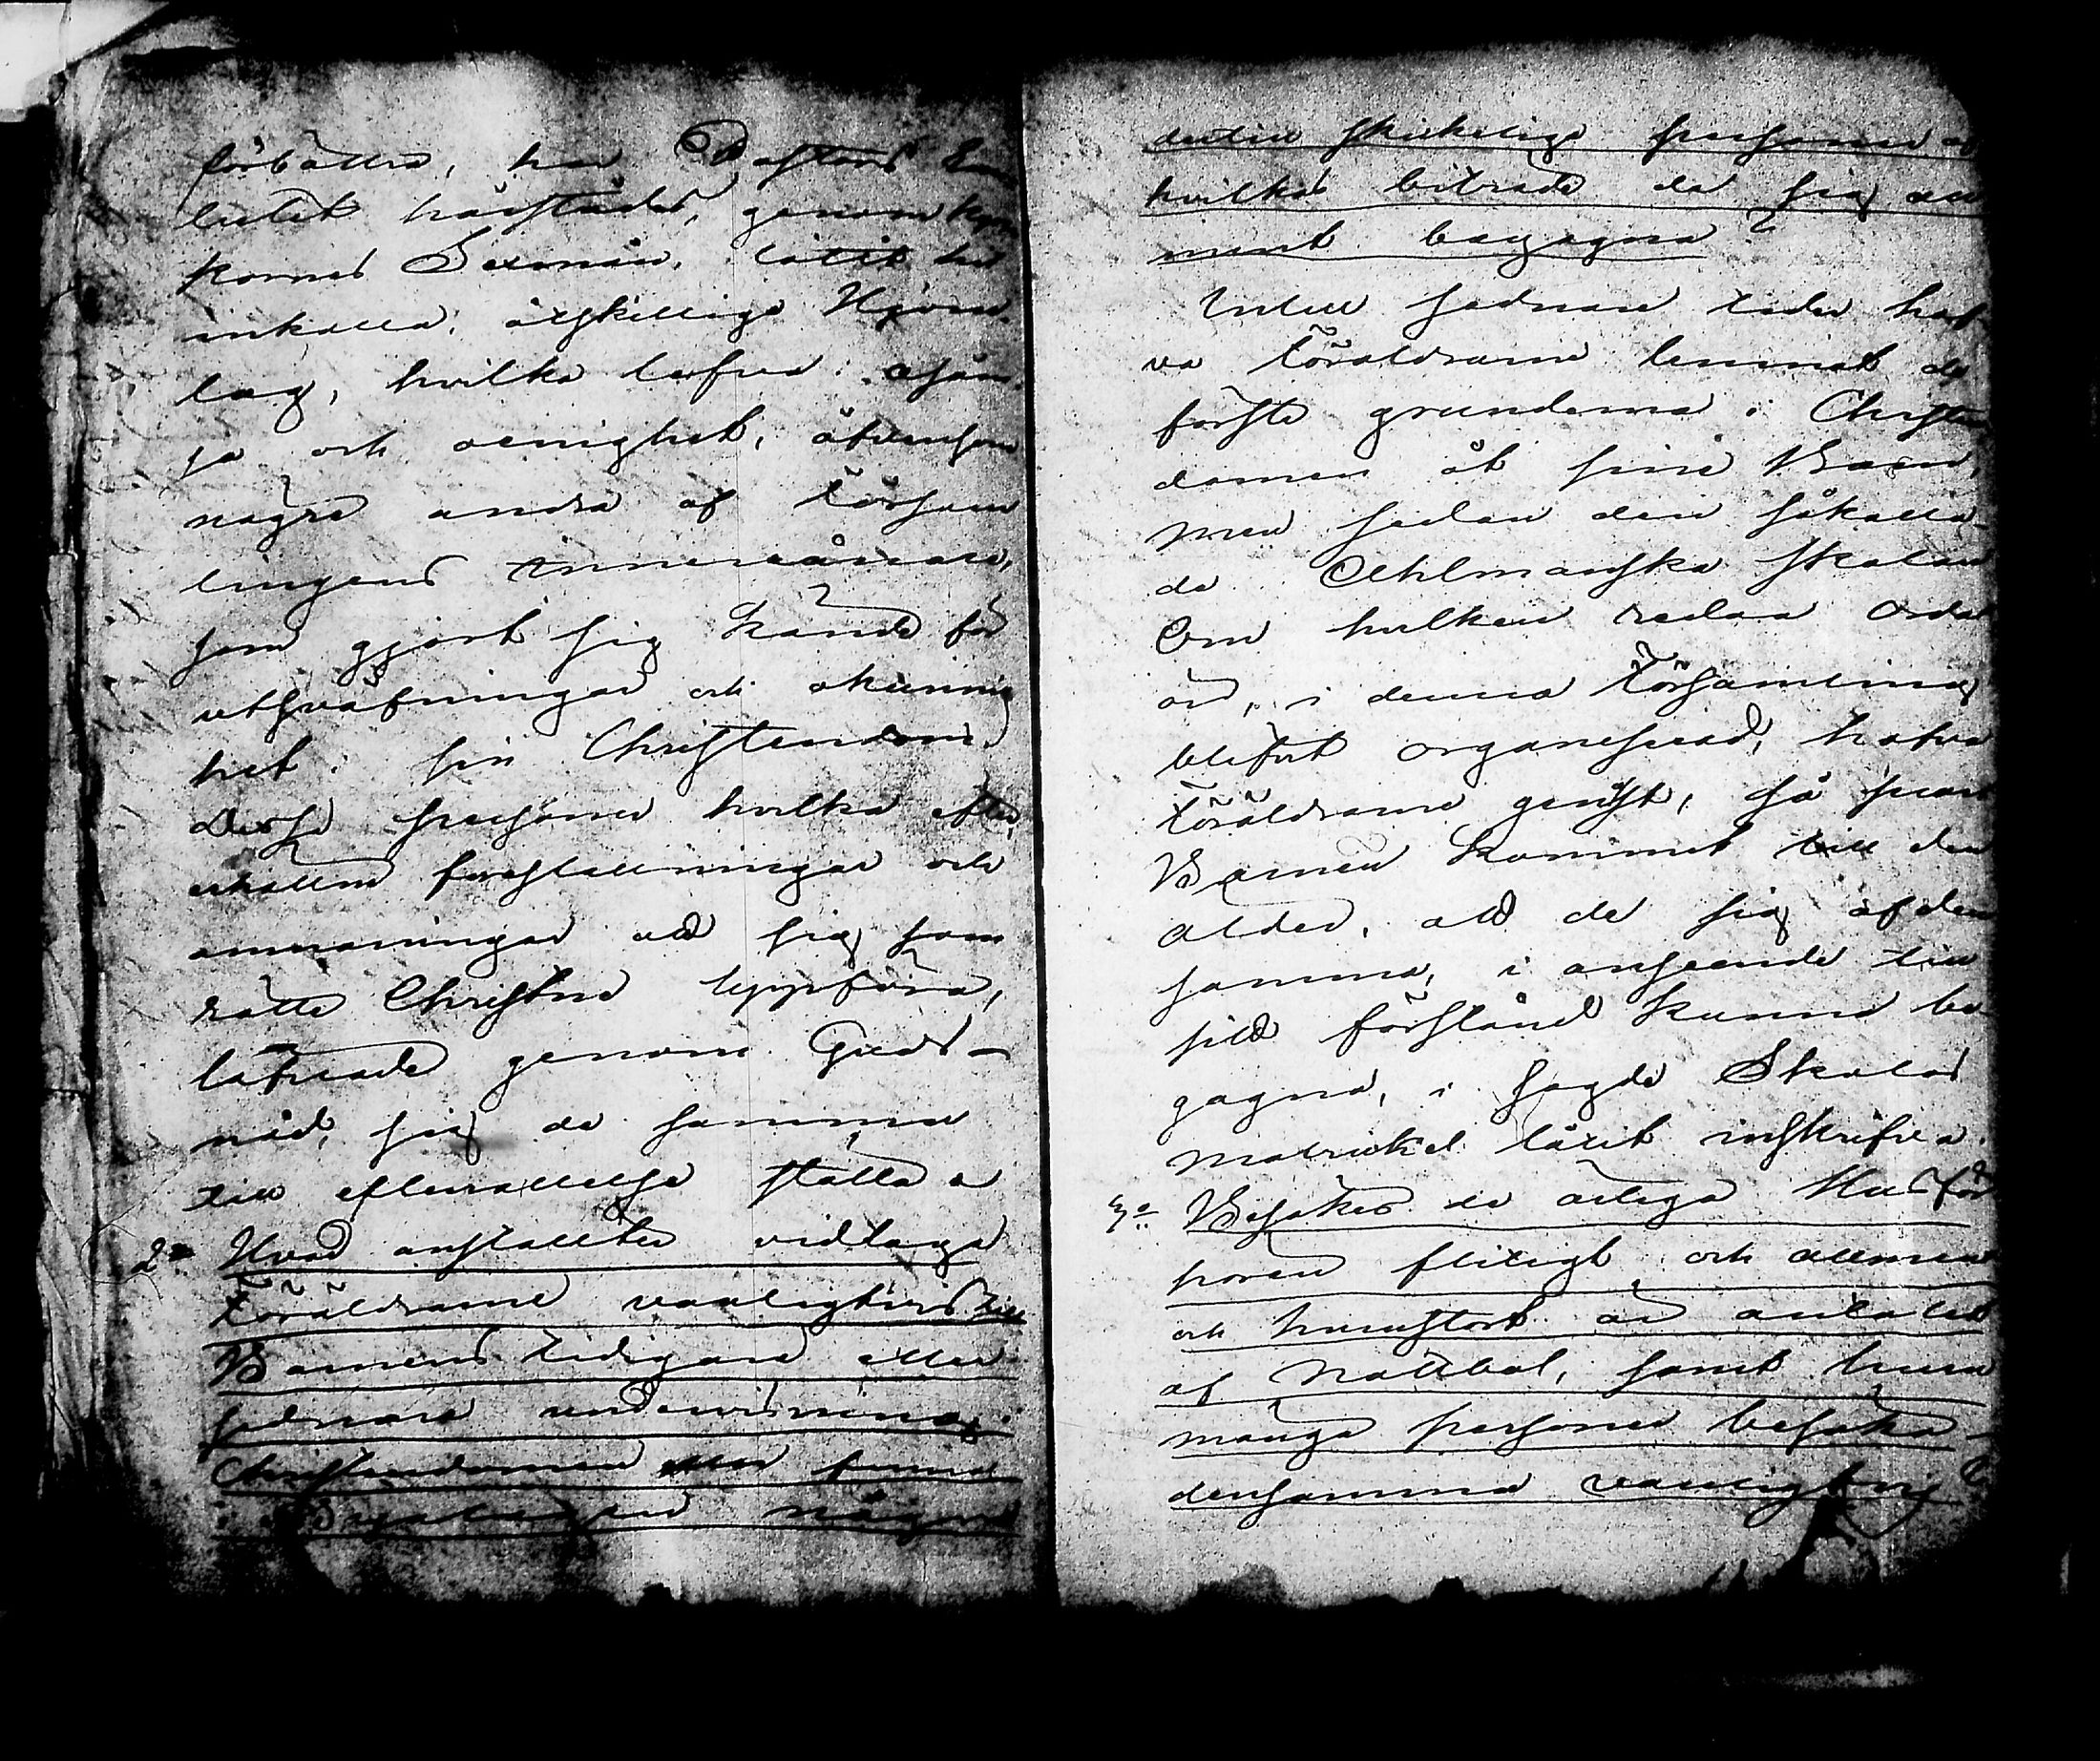 förbättra, har Pastors Em
betet härstädes, genom kyr
kornes Sexmän, låtit hos
inkalla, åtskillige Hjone
lag, hvilka lefva i osäm
ja och oenighet, äfvensom
några andra af Försam
lingens innevånare,
som gjort sig kände för
utsväfningar och okunnig
het i sin Christendom.
Desse personer hvilka efter
erhållne föreställningar och
anmaningar att sig som
rätte Christne uppföra,
lofvade genom Guds
nåd, sig de samma
till efterrättelse ställa
2o Hvad anstallter vidtaga
Föräldrarne vanligtvis till
Barnens tidigare eller
sednare undervisning i
Christendomen eller finnas
i Församlingen någre
dertill skickelige personer af
hvilkas biträde de sig all
mänt begagna?
Intill sednare tider haf
va Föräldrarne lemnat de
förste grunderna i Christen
domen åt sine Barn,
men sedan den såkalla-
de Ahlmanska skolan
Om hvilken redan ordat
är, i denna Församling
blifvit organiserad, hafva
Föräldrarne genast, så snart
Barnen kommit till den
ålder, att de sig af den
samma, i anseende till
sitt förstånd kunna be
gagna, i sagde Skolas
matrickel låtit inskrifva.
3o Besökes de årliga Husför
hören flitigt och allmänt
och huru stort är antalet
af Nattbol, samt huru
många personer besöka
densamma vanligtvis?